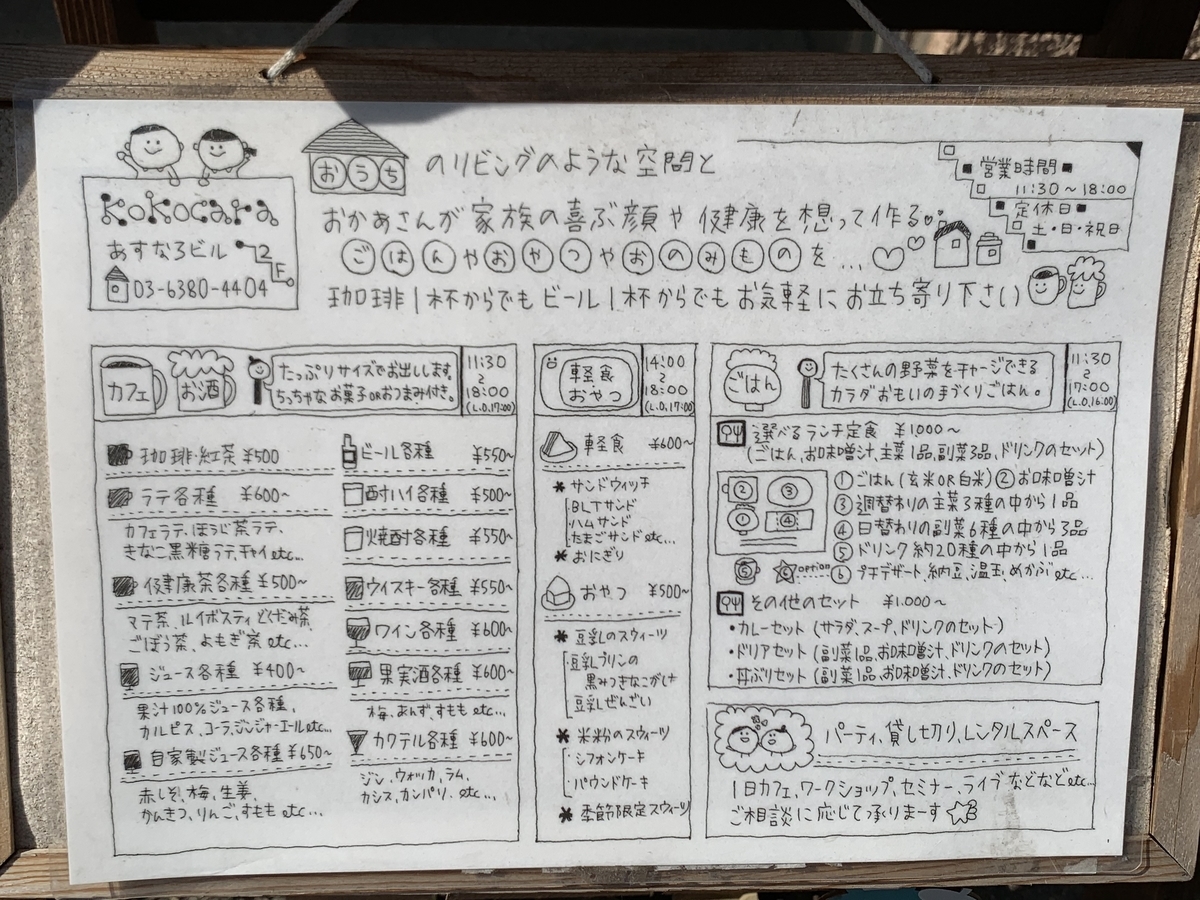 kokocara
あすなろビル 2F
03-6380-4404
おうちのリビングのような空間と
おかあさんが家族の喜ぶ顔や健康を想って作る
ごはんやおやつやおのみものを…
珈琲1杯からでもビール1杯からでもお気軽にお立ち寄り下さい
■営業時間■
11:30～18:00
■定休日■
土・日・祝日
カフェ
お酒
たっぷりサイズでお出しします。
ちっちゃなお菓子ORおつまみ付き。
11:30
～
18:00
(L.O.17:00)
珈琲・紅茶 ¥500
ラテ各種 ¥600~
カフェラテ、ほうじ茶ラテ、
きなこ黒糖ラテ、チャイetc…
健康茶各種 ¥500~
マテ茶、ルイボスティ、どくだみ茶、
ごぼう茶、よもぎ茶 etc…
ジュース各種 ¥400~
果汁100%ジュース各種、
カルピス、コーラ、ジンジャーエールetc…
自家製ジュース各種 ¥650~
赤しそ、梅、生姜、
かんきつ、りんご、すもも etc…
ビール各種 ¥550~
酎ハイ各種 ¥500~
焼酎各種 ¥550~
ウイスキー各種 ¥550~
ワイン各種 ¥600~
果実酒各種 ¥600~
梅、あんず、すもも etc…
カクテル各種 ¥600~
ジン、ウォッカ、ラム、
カシス、カンパリ、etc…
軽食
おやつ
14:00
～
18:00
(L.O.17:00)
軽食 ¥600~
＊サンドウィッチ
BLTサンド
ハムサンド
たまごサンドetc…
＊おにぎり
おやつ ¥500~
＊豆乳のスウィーツ
・豆乳プリンの
黒みつきなこがけ
・豆乳ぜんざい
＊米粉のスウィーツ
・シフォンケーキ
・パウンドケーキ
＊季節限定スウィーツ
ごはん
たくさんの野菜をチャージできる
カラダおもいの手づくりごはん。
11:30
～
17:00
(L.O.16:00)
選べるランチ定食 ¥1,000~
(ごはん、お味噌汁、主菜1品、副菜3品、ドリンクのセット)
② ③
① ④
⑤ ⑥option
①ごはん(玄米OR白米)②お味噌汁
③週替わりの主菜3種の中から1品
④日替わりの副菜6種の中から3品
⑤ドリンク約20種の中から1品
⑥プチデザート、納豆、温玉、めかぶetc…
その他のセット ¥1,000~
・カレーセット (サラダ、スープ、ドリンクのセット)
・ドリアセット (副菜1品、お味噌汁、ドリンクのセット)
・丼ぶりセット (副菜1品、お味噌汁、ドリンクのセット)
パーティ、貸し切り、レンタルスペース
1日カフェ、ワークショップ、セミナー、ライブなどなどetc…
ご相談に応じて承りまーす